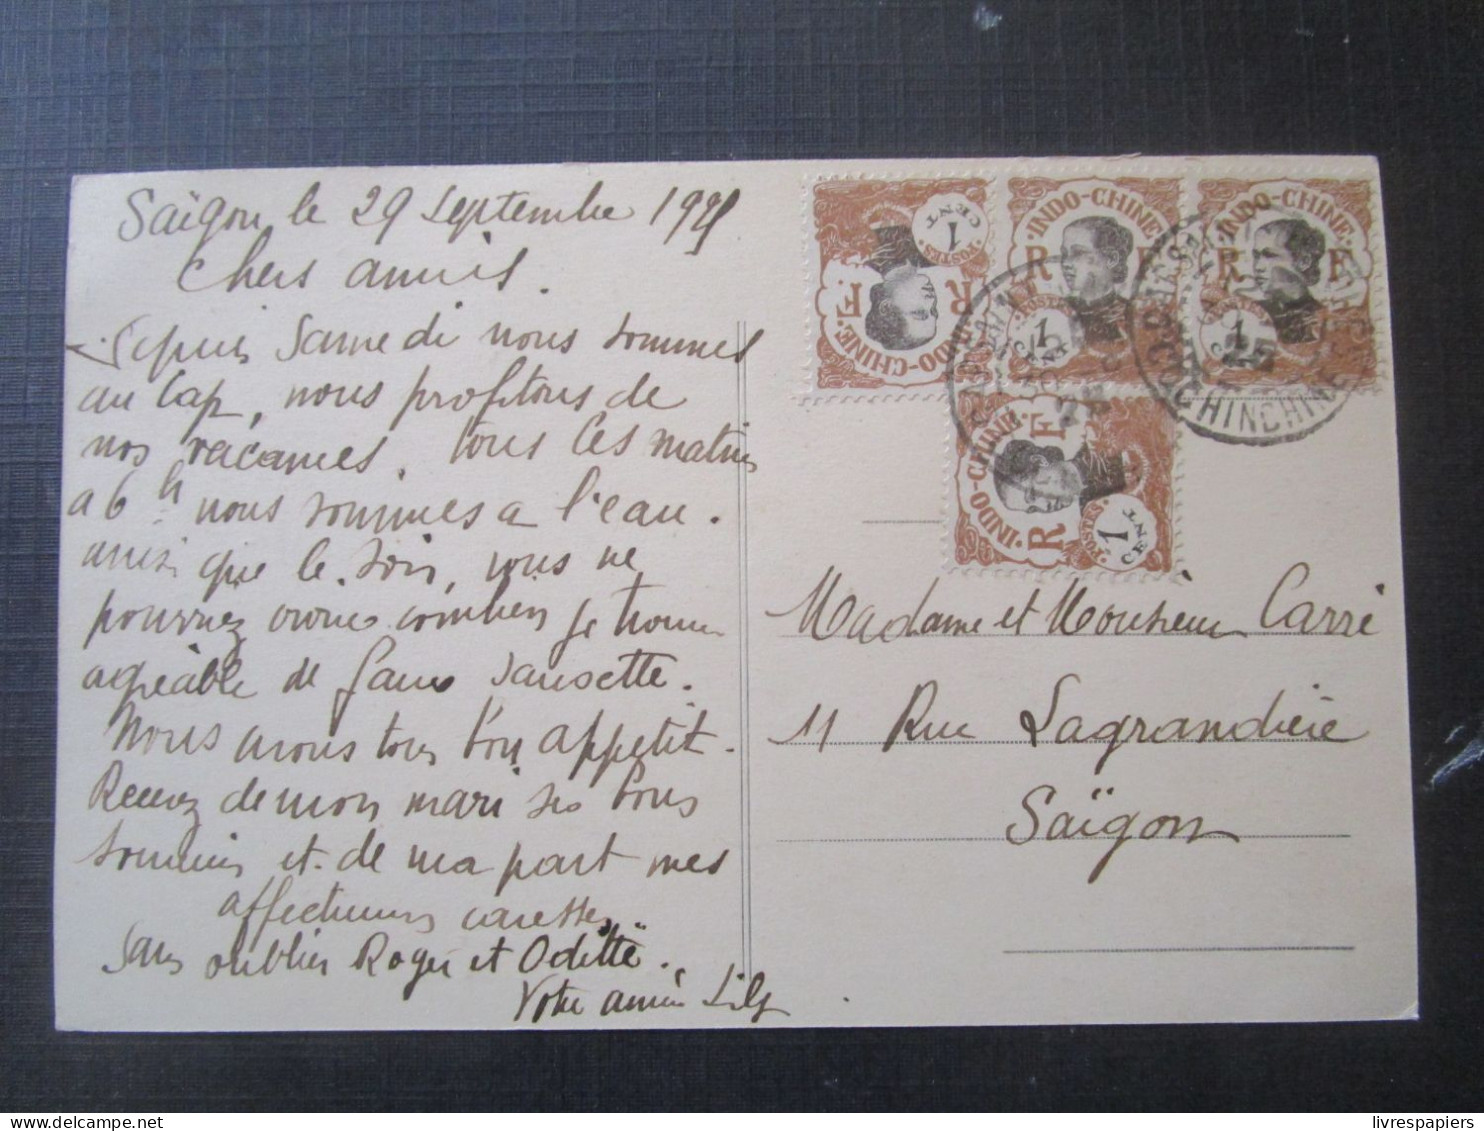 Saïgon le 29 Septembre 19
Chers amis.
Depuis Samedi nous sommes
au Cap, nous profitons de
nos vacances. tous les matins
a 6 h nous sommes a l'eau.
ainsi que le soir, vous ne
pourrez croire combien je trouve
agréable de faire saucette.
Nous avons tous bon appetit.
Recevez de mon mari ses bons
souvenirs et de ma part mes
affectueuses caresses,
Sans oublier Roger et Odette.
Votre amie Lily
INDO-CHINE
R F
POSTES
1
CENT
INDO-CHINE
R F
POSTES
1
CENT
INDO-CHINE
R F
1
INDO-CHINE
R F
POSTES
1
CENT
COCHINCHINE
Madame et Monsieur Carré
11 Rue Lagrandière
Saïgon
livrespapiers